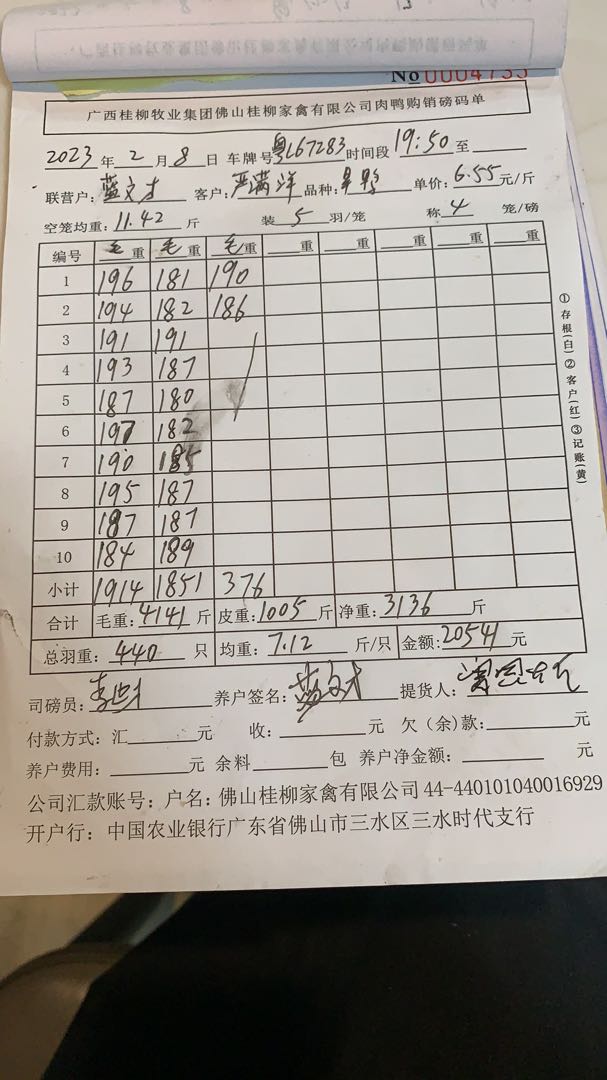 No 0004733
广西桂柳牧业集团佛山桂柳家禽有限公司肉鸭购销磅码单
2023 年 2 月 8 日 车牌号 粤L67283 时间段 19:50 至
联营户: 蓝文才 客户: 严满洋 品种: 单价: 6.55 元/斤
空笼均重: 11.42 斤 装 5 羽/笼 称 4 笼/磅
编号 毛重 毛重 毛重 重 重 重 重 重
1 196 181 190
2 194 182 186
3 191 191
4 193 187
5 187 180
6 197 182
7 190 185
8 195 187
9 187 187
10 184 189
小计 1914 1851 376
合计 毛重: 4141 斤 皮重: 1005 斤 净重: 3136 斤
总羽重: 440 只 均重: 7.12 斤/只 金额: 20541 元
司磅员: 养户签名: 蓝文才 提货人:
付款方式: 汇 元 收: 元 欠(余)款: 元
养户费用: 元 余料 包 养户净金额: 元
公司汇款账号: 户名: 佛山桂柳家禽有限公司 44-440101040016929
开户行: 中国农业银行广东省佛山市三水区三水时代支行
①存根(白)②客户(红)③记账(黄)